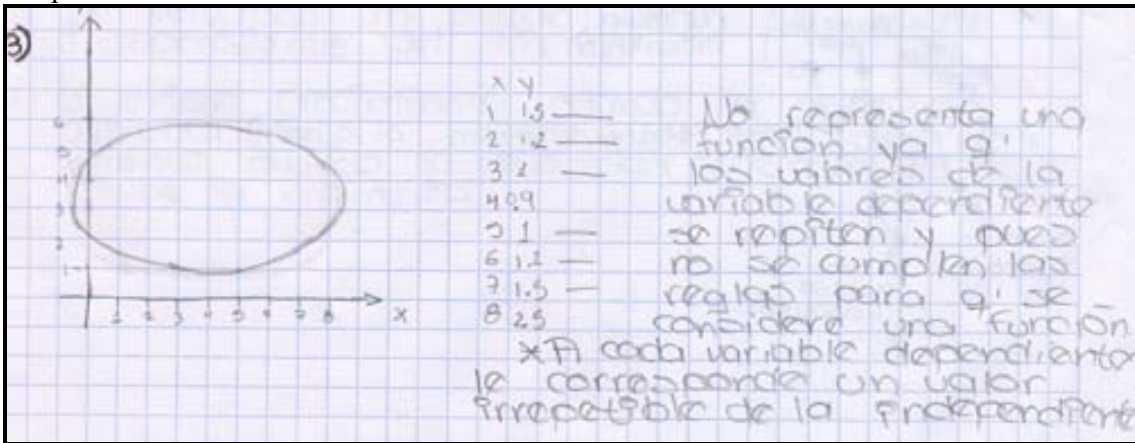 3)
6
5
4
3
2
1
1 2 3 4 5 6 7 8 x
x y
1 1.5 — No representa una
2 1.2 — función ya q'
3 1 — los valores de la
4 0.9 variable dependiente
5 1 — se repiten y pues
6 1.2 — no se cumplen las
7 1.5 — reglas para q' se
8 2.5 considere una función
*A cada variable dependiente
le corresponde un valor
irrepetible de la independiente